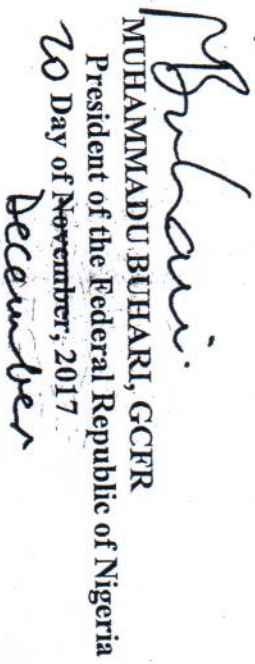 MBuhari.
MUHAMMADU BUHARI, GCFR
President of the Federal Republic of Nigeria
20 Day of November, 2017
December